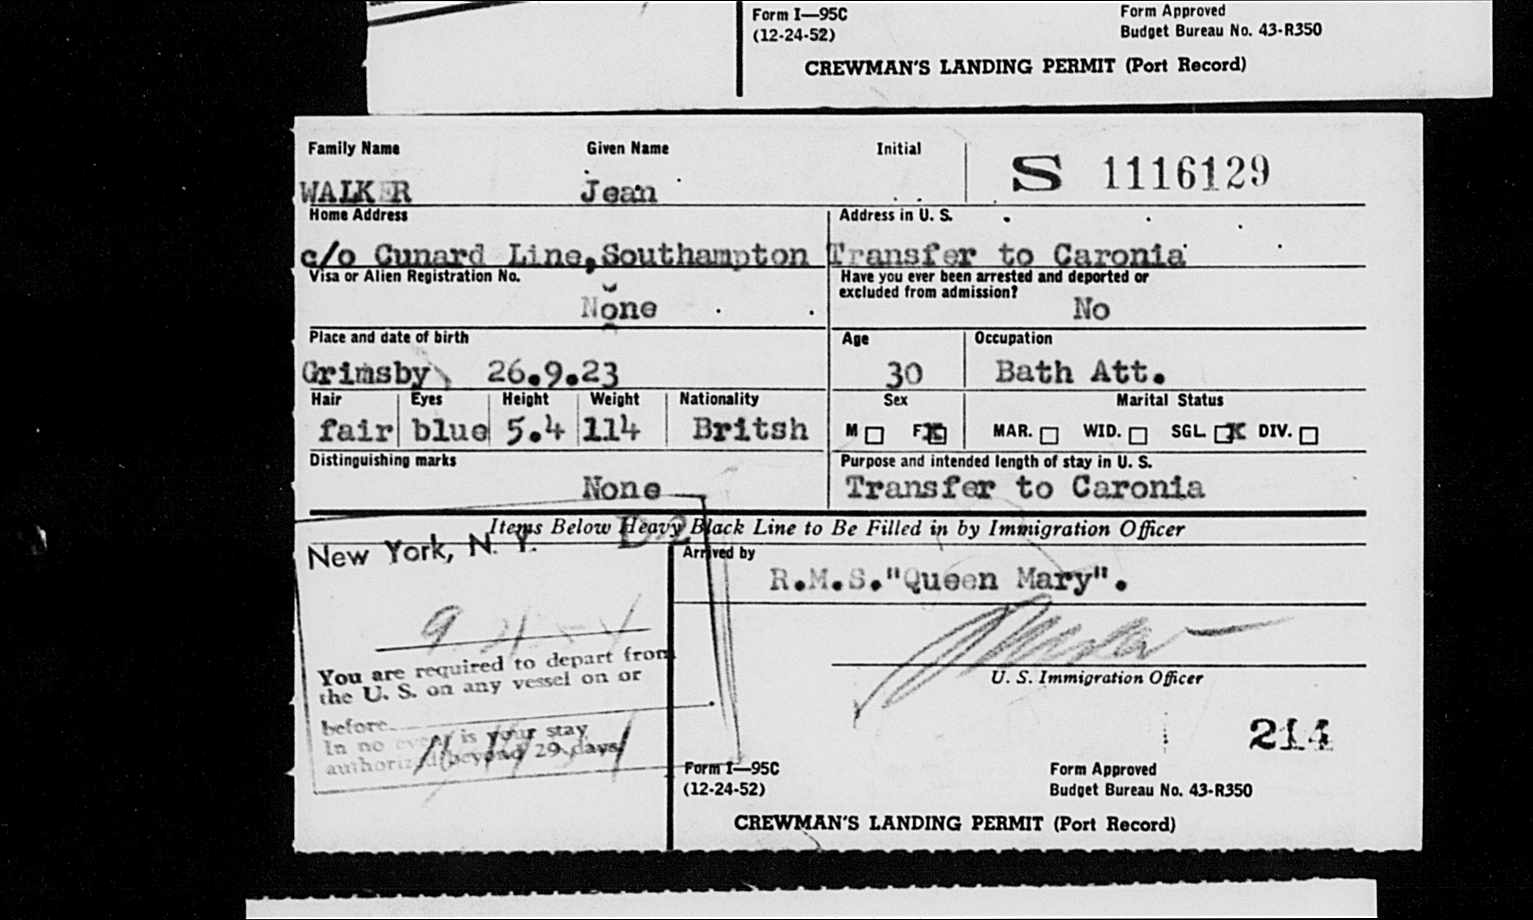 Form I—95C
(12-24-52)
Form Approved
Budget Bureau No. 43-R350
CREWMAN'S LANDING PERMIT (Port Record)
Family Name Given Name Initial
S 1116129
WALKER Jean
Home Address Address in U. S.
c/o Cunard Line, Southampton Transfer to Caronia
Visa or Alien Registration No.
None
Have you ever been arrested and deported or
excluded from admission?
No
Place and date of birth Age Occupation
Grimsby 26.9.23 30 Bath Att.
Hair Eyes Height Weight Nationality Sex Marital Status
fair blue 5.4 114 Britsh M F X MAR. WID. SGL. X DIV.
Distinguishing marks Purpose and intended length of stay in U. S.
None Transfer to Caronia
Items Below Heavy Black Line to Be Filled in by Immigration Officer
New York, N. Y.
Arrived by
R.M.S."Queen Mary".
You are required to depart from
the U. S. on any vessel on or
before
In no event is your stay
authorized beyond 29 days
U. S. Immigration Officer
214
Form I—95C
(12-24-52)
Form Approved
Budget Bureau No. 43-R350
CREWMAN'S LANDING PERMIT (Port Record)